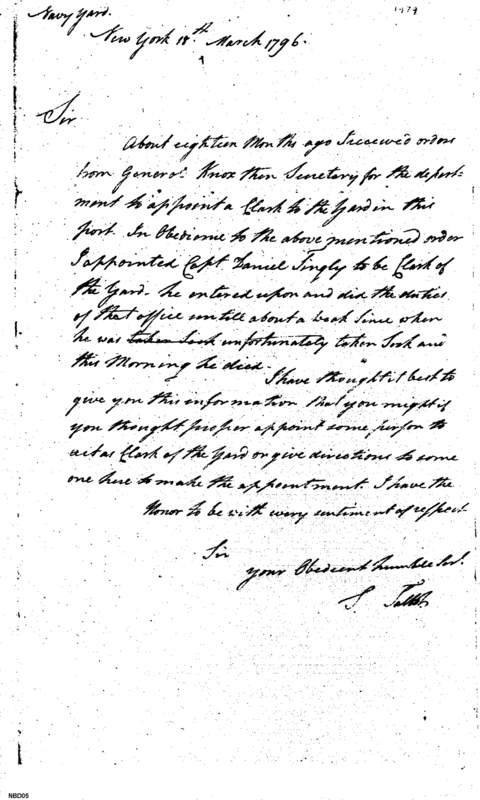 Navy Yard.
New York 18th March 1796.
Sir
About eighteen Months ago I receeved orders
from Generol Knox then Secretary for the depert-
ment to appoint a Clark to the Yard in this
port. In Obedience to the above mentioned order
I appointed Capt Daniel Tingly to be Clark of
the Yard- he entered upon and did the duties
of that office untill about a week Since when
he was taken Seek unfortunately taken Seek and
this Morning he died.
I have thought it best to
give you this information that you might if
you thought proper appoint some person to
act as Clark of the Yard or give directions to some
one here to make the appointment. I have the
Honor to be with every sentiment of respect
Sir
your Obedient humble Ser.t
S Talbot
NBD05